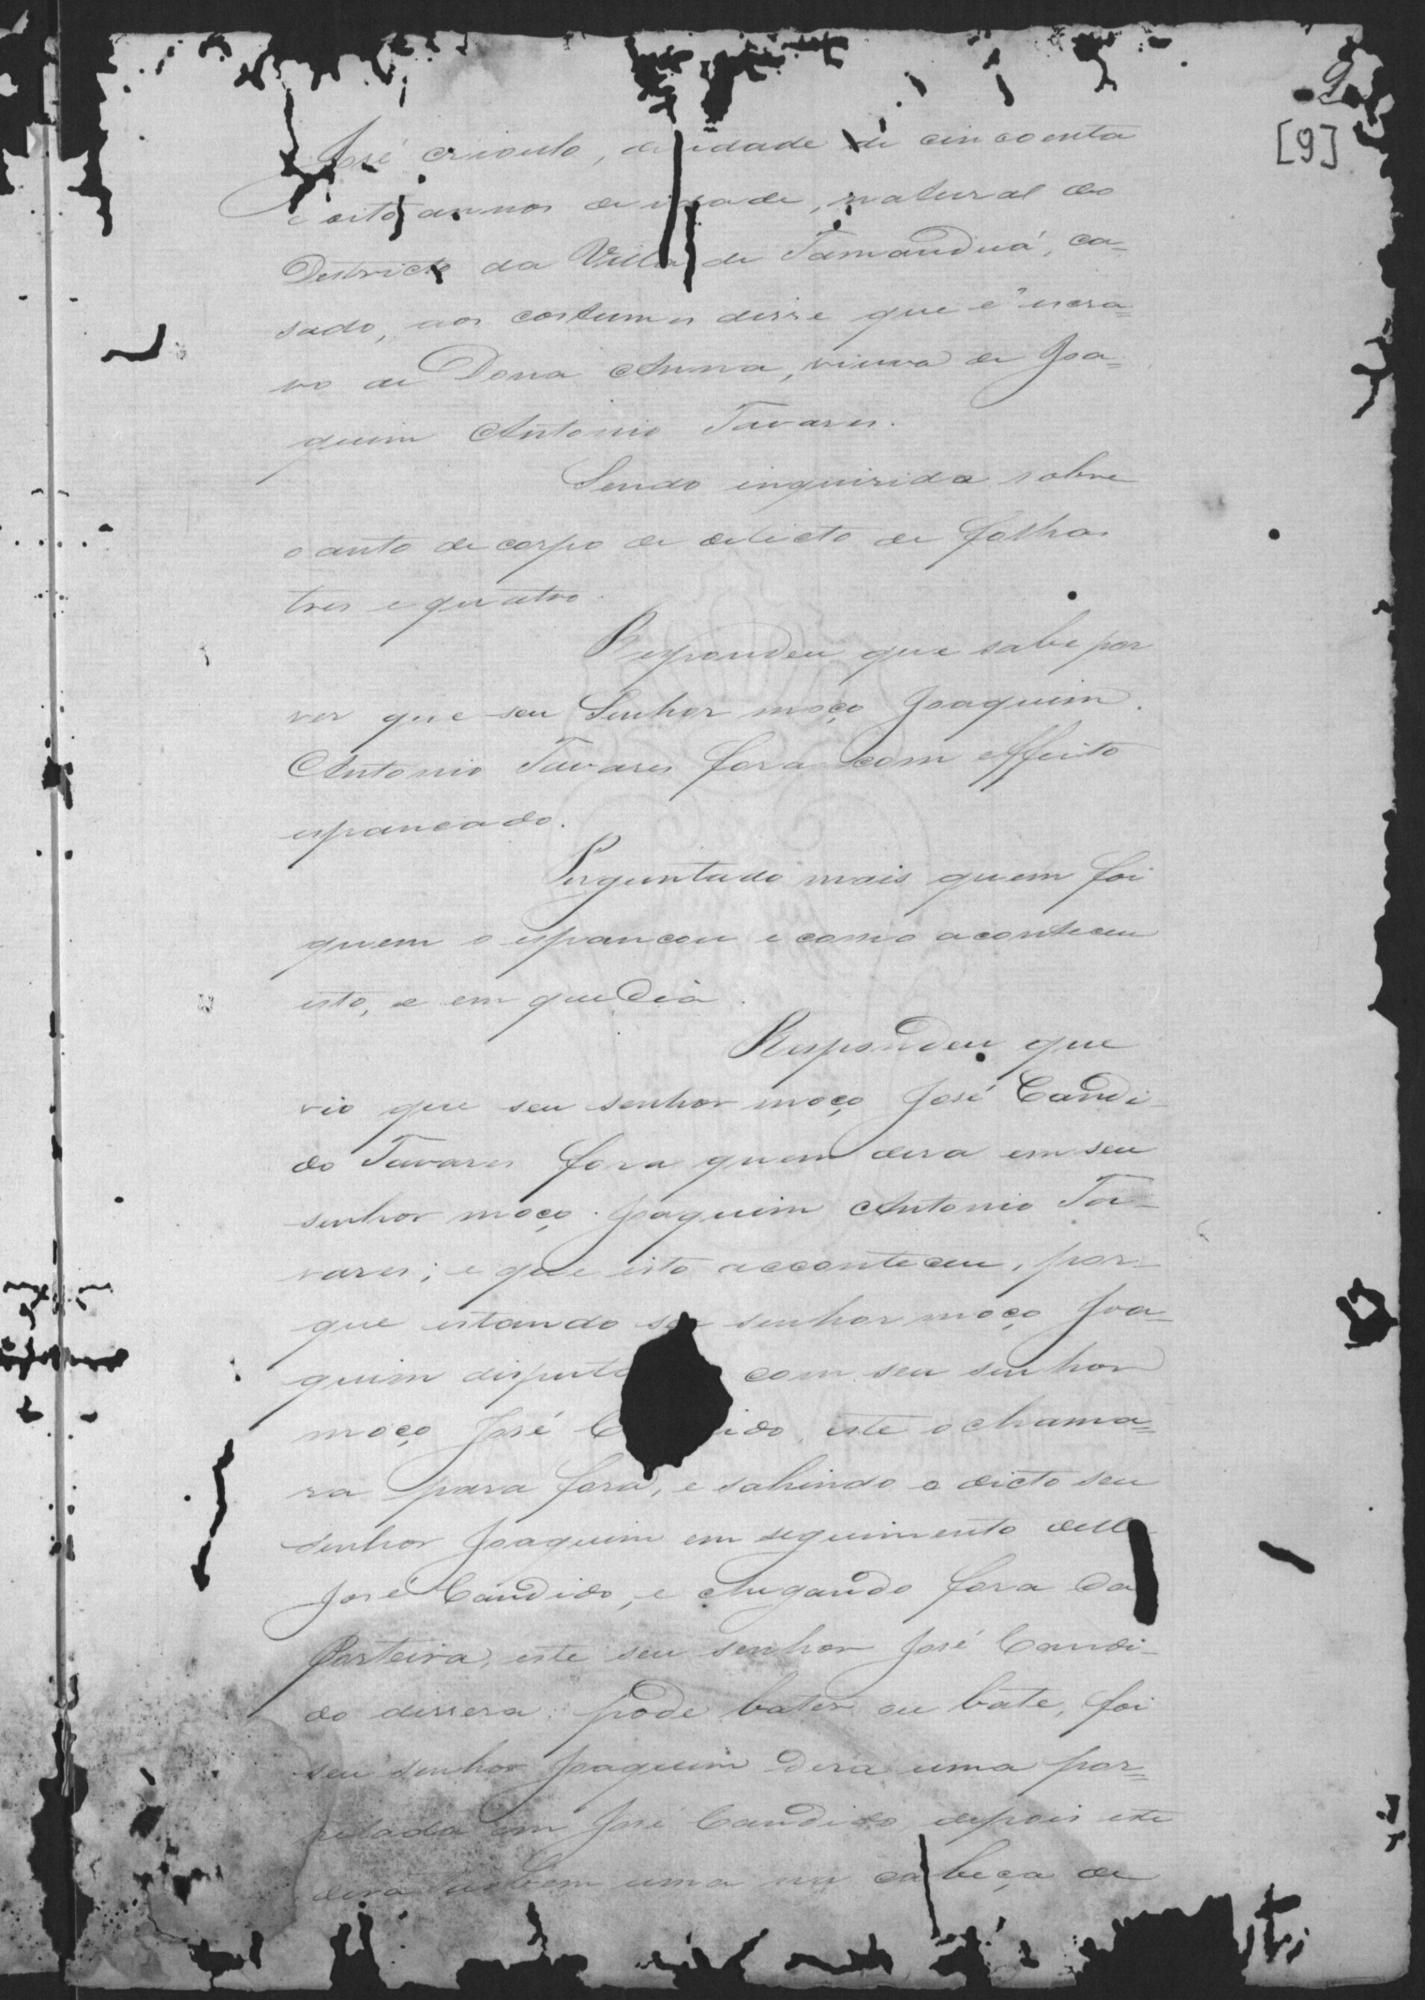 9
[9]
José crioulo, de idade de cincoenta
e oito annos de idade, natural do
Destricto da Villa de Tamanduá, ca=
sado, aos costumes disse que é escra=
vo de Dona Anna, viuva de Joa=
quim Antonio Tavares.
Sendo inquirida sobre
o auto de corpo de delicto de folhas
tres e quatro.
Respondeu que sabe por
ver que seu Senhor moço Joaquim
Antonio Tavares fora com effeito
espancado.
Perguntado mais quem foi
quem o espancou e como aconteceu
isto, e em que dia.
Respondeu que
vio que seu senhor moço José Candi-
do Tavares fora quem dera em seu
senhor moço Joaquim Antonio Ta-
vares; e que isto acconteceu, por-
que estando seu senhor moço Joa-
quim disputa com seu senhor
moço José C ido, este o chama=
ra para fora, e sahindo o dicto seu
senhor Joaquim em seguimento delle
José Candido, e chegando fora da
Porteira, este seu senhor José Candi-
do dissera: pode bater ou bate, foi
seu senhor Joaquim dera uma por=
retada em José Candido depois este
dera tambem uma na cabeça de